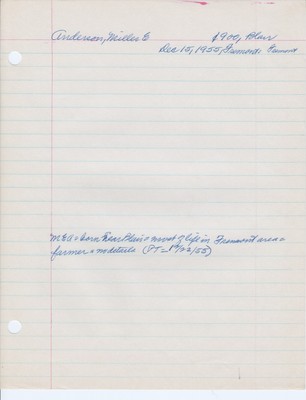 Anderson, Miller E $900, Blair
Dec 15, 1955, Fremont; Fremont
MEA = born near Blair = most of life in Fremont area =
farmer = no details (FT = 12/22/55)